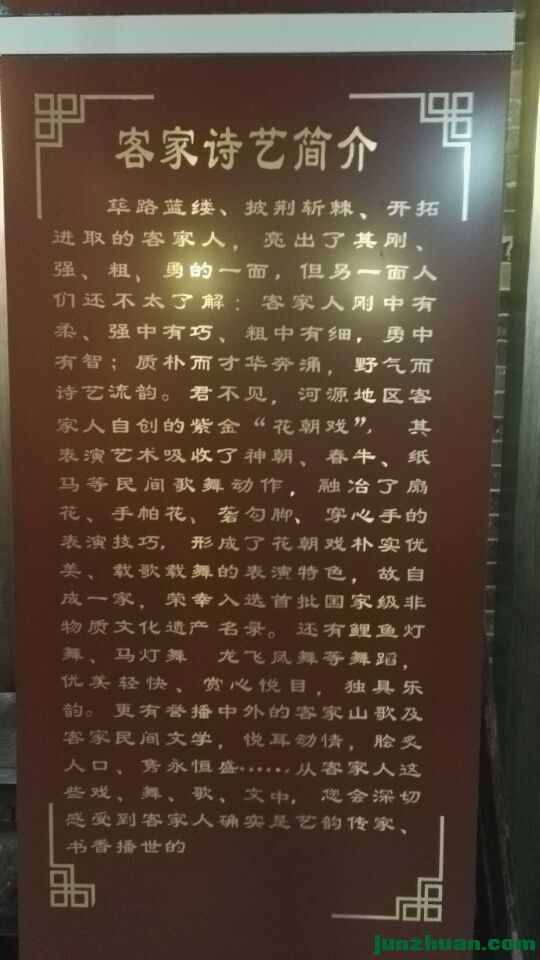 客家诗艺简介
筚路蓝缕、披荆斩棘、开拓
进取的客家人，亮出了其刚、
强、粗、勇的一面，但另一面人
们还不太了解：客家人刚中有
柔、强中有巧、粗中有细，勇中
有智；质朴而才华奔涌，野气而
诗艺流韵。君不见，河源地区客
家人自创的紫金“花朝戏”，其
表演艺术吸收了神朝、春牛、纸
马等民间歌舞动作，融冶了扇
花、手帕花、砻勾脚、穿心手的
表演技巧，形成了花朝戏朴实优
美、载歌载舞的表演特色，故自
成一家，荣幸入选首批国家级非
物质文化遗产名录。还有鲤鱼灯
舞、马灯舞 龙飞凤舞等舞蹈，
优美轻快、赏心悦目，独具乐
韵。更有誉播中外的客家山歌及
客家民间文学，悦耳动情，脍炙
人口、隽永恒盛……从客家人这
些戏、舞、歌、文中，您会深切
感受到客家人确实是艺韵传家、
书香播世的
junzhuan.com